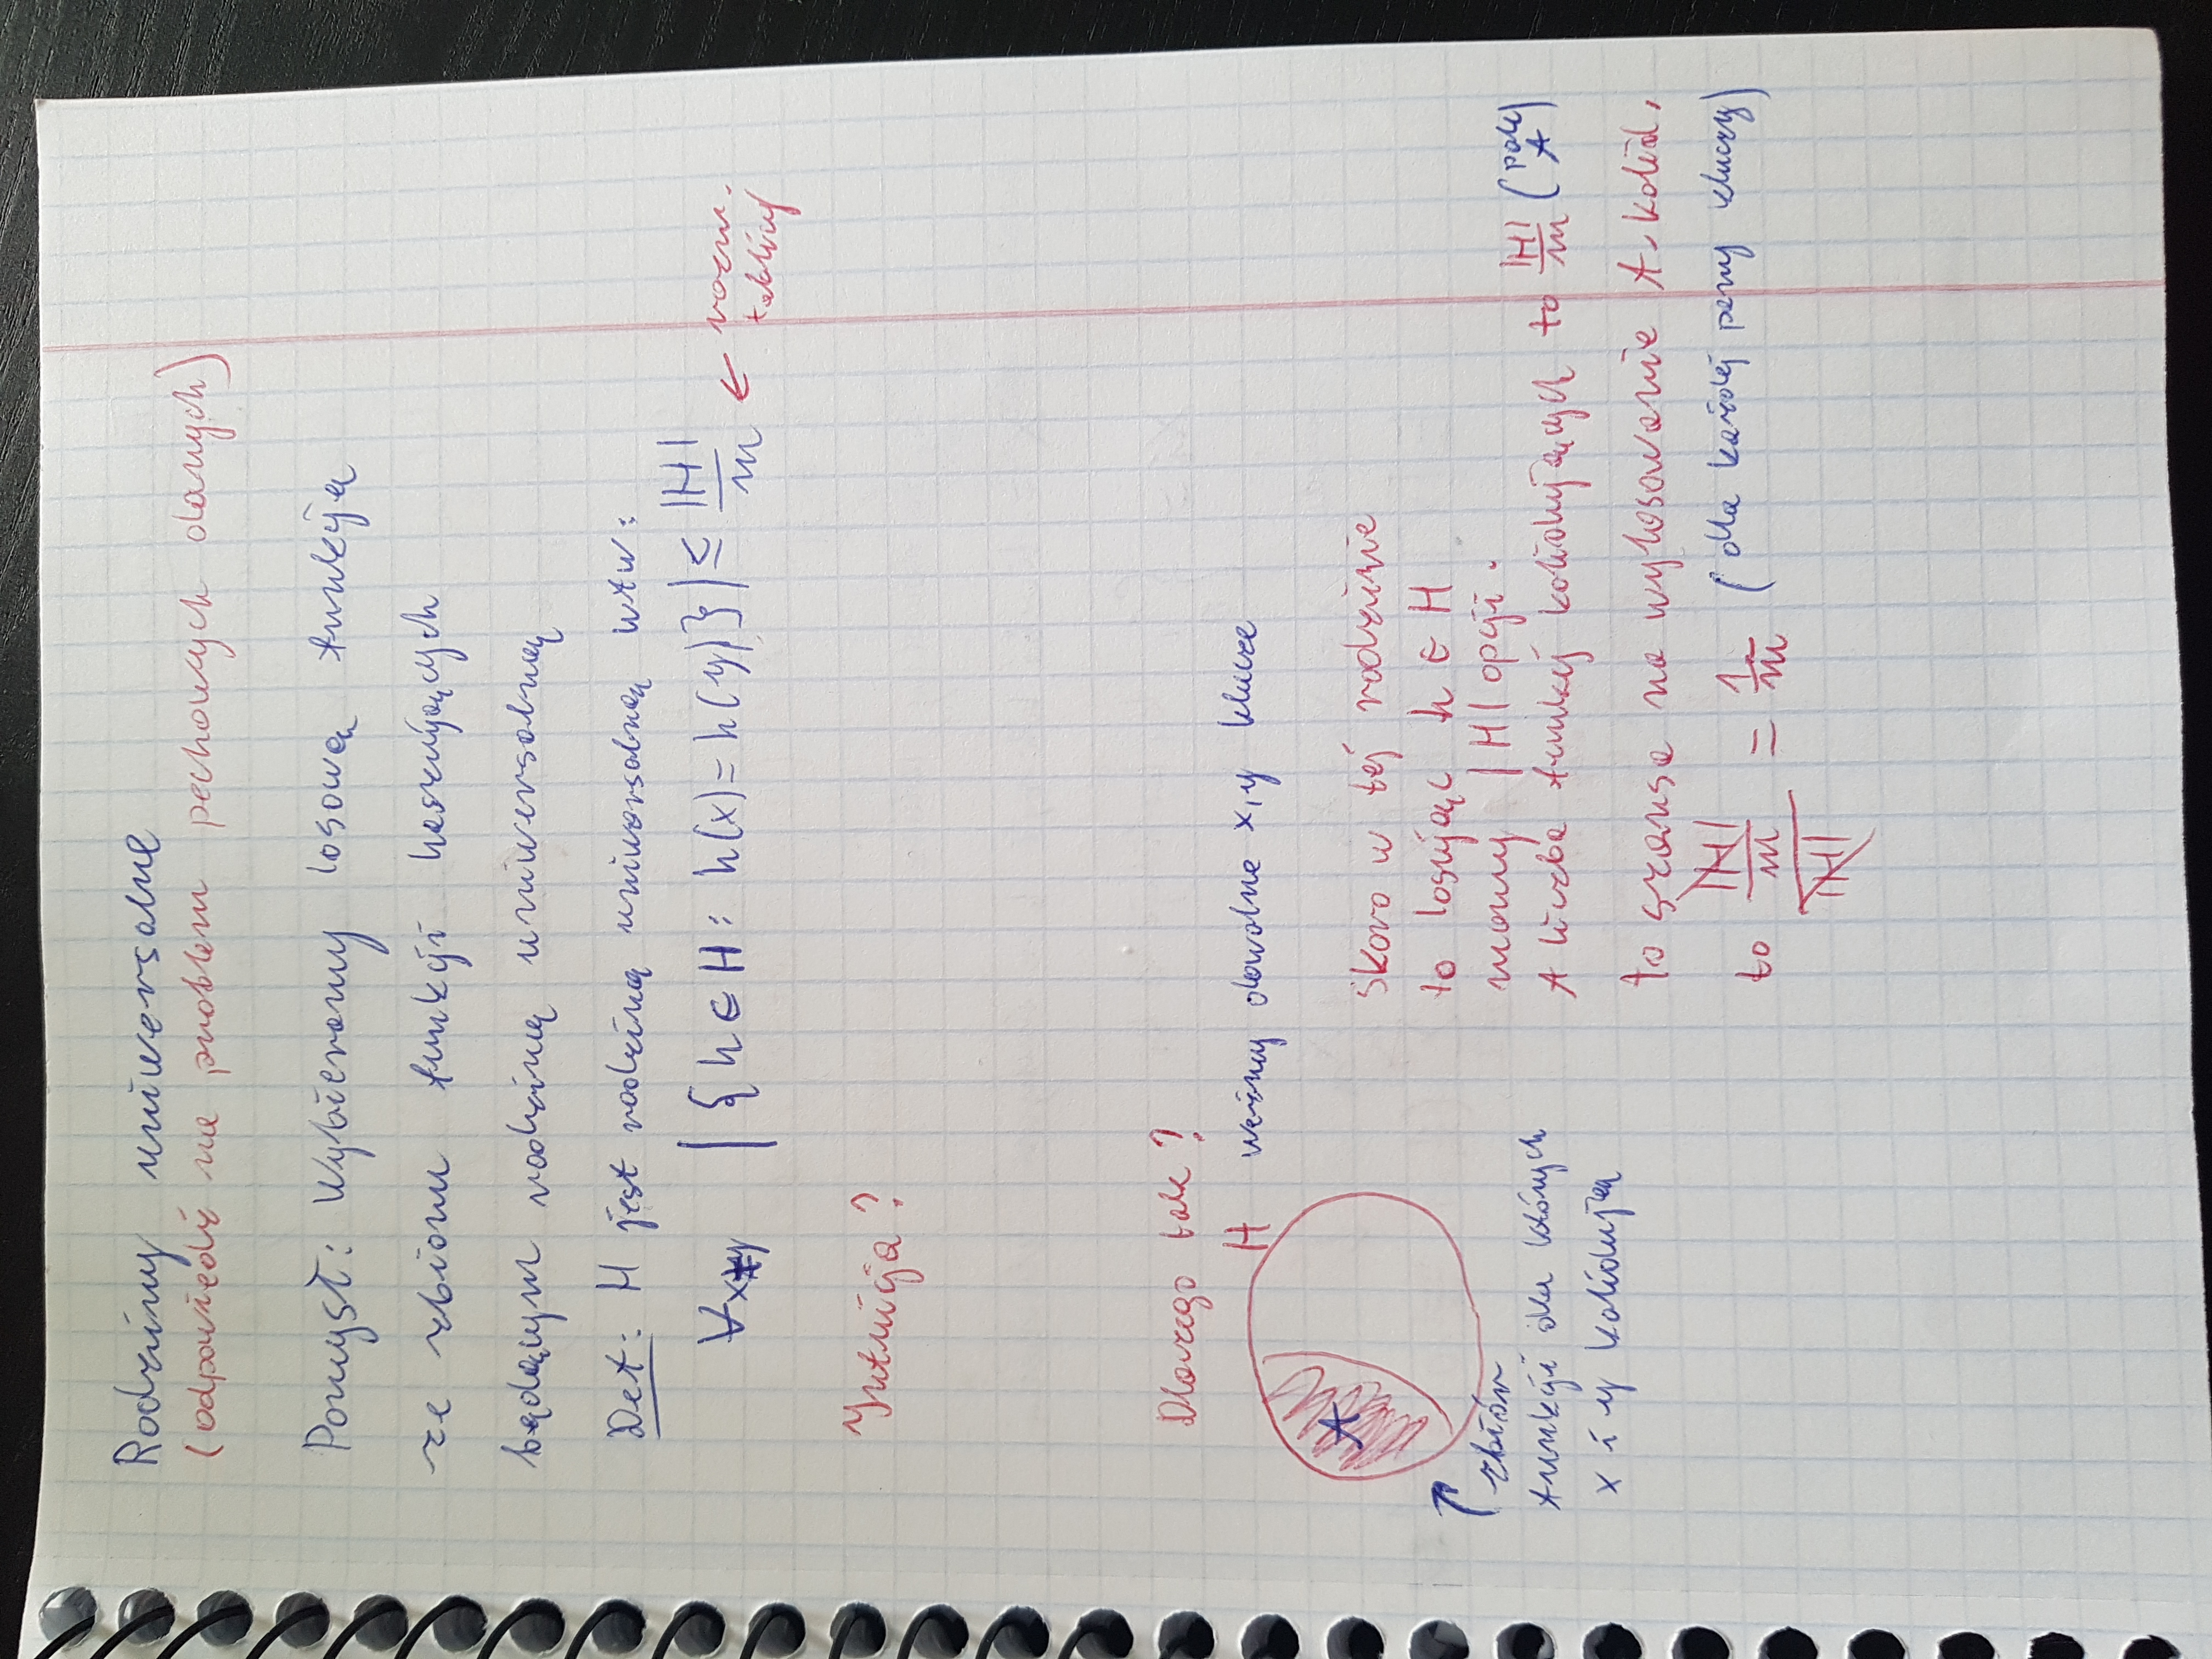 Rodziny uniwersalne
(odpowiedź na problem pechowych danych)
Pomysł: Wybieramy losową funkcję
ze zbioru funkcji haszujących
będącym rodziną uniwersalną
Def: H jest rodziną uniwersalną wtw:
∀x≠y |{h∈H: h(x)=h(y)}| ≤ |H|/m ← rozm. tablicy
Intuicja?
Dlaczego tak?
H weźmy dowolne x,y klucze
A
zbiór
funkcji dla których
x i y kolidują
skoro w tej rodzinie
to losując h ∈ H
mamy |H| opcji.
A liczba funkcji kolidujących to |H|/m (pole A)
to szansa na wylosowanie f. kolid.
to |H|/m / |H| = 1/m (dla każdej pary kluczy)